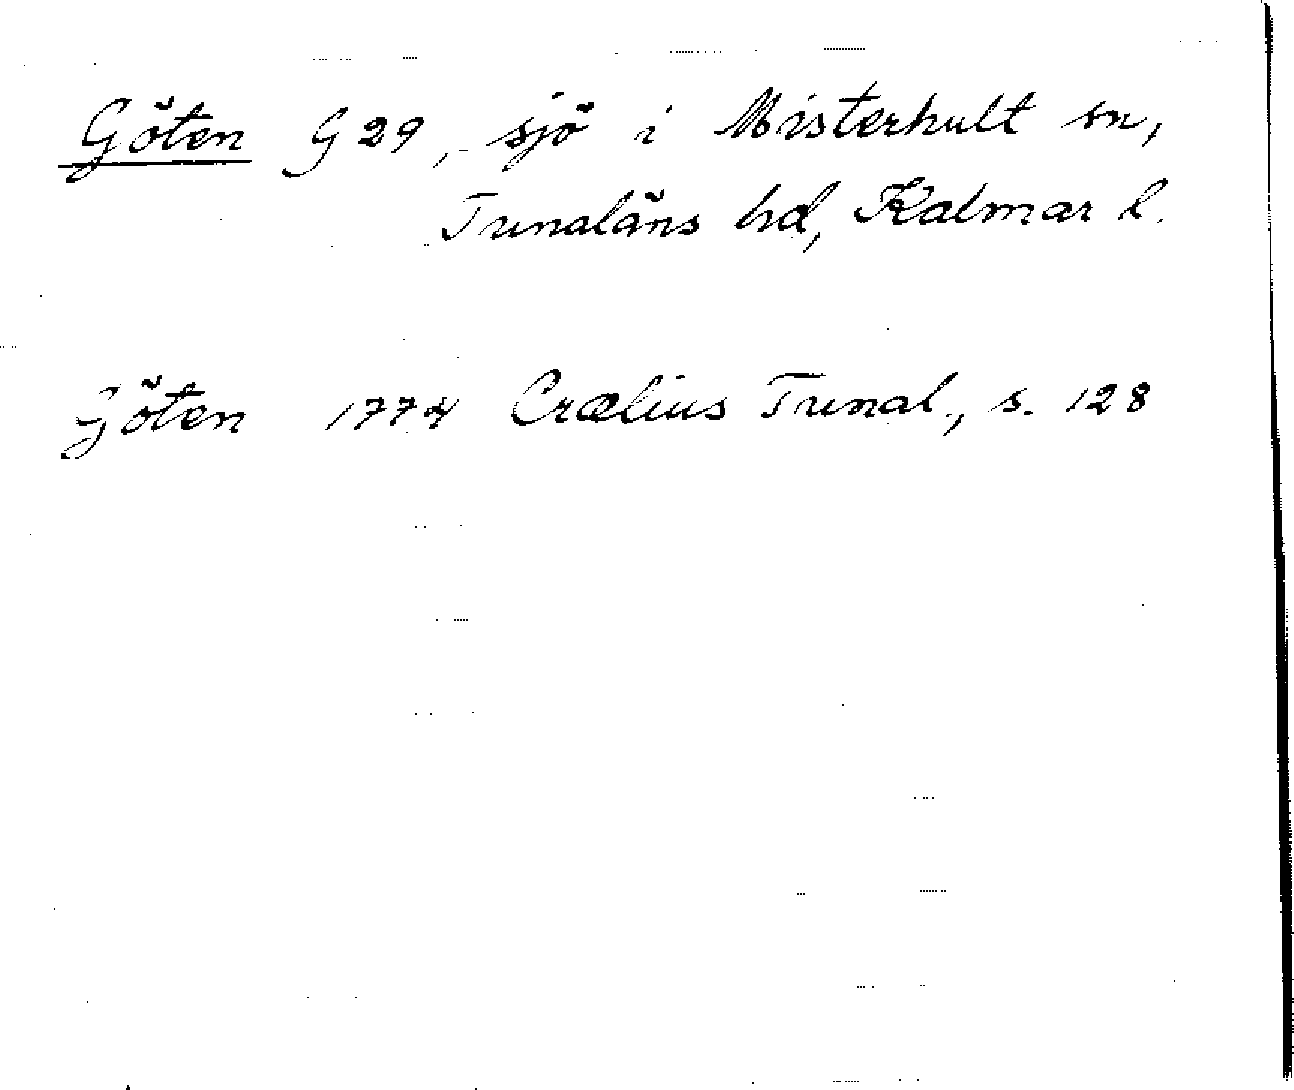 Göten G 29, sjö i Misterhult sn,
Tunaläns hd, Kalmar l.
Göten 1774 Crælius Tunal., s. 128